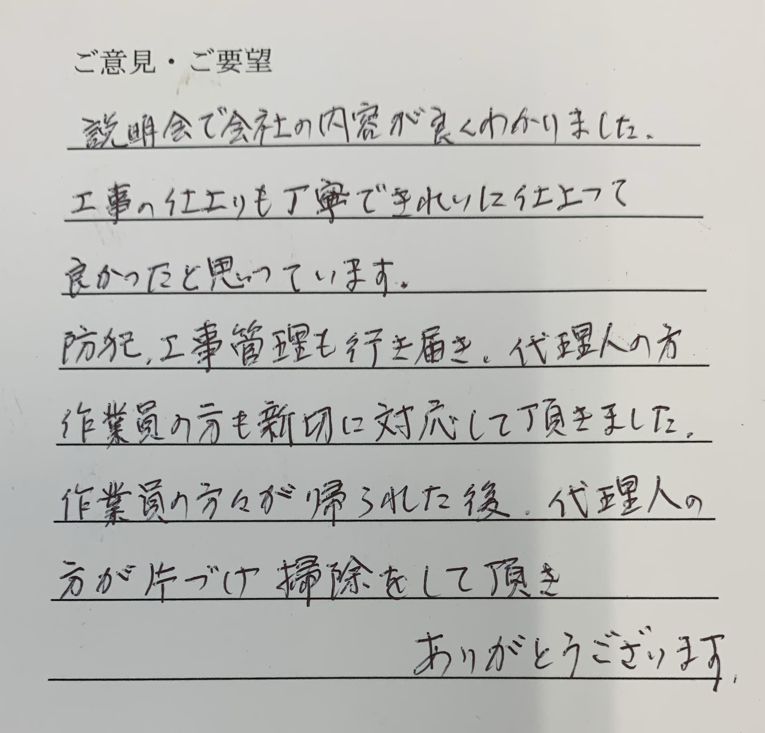 ご意見・ご要望
説明会で会社の内容が良くわかりました、
工事の仕上りも丁寧できれいに仕上って
良かったと思っています。
防犯、工事管理も行き届き、代理人の方
作業員の方も新切に対応して頂きました、
作業員の方々が帰られた後、代理人の
方が片づけ掃除をして頂き
ありがとうございます、